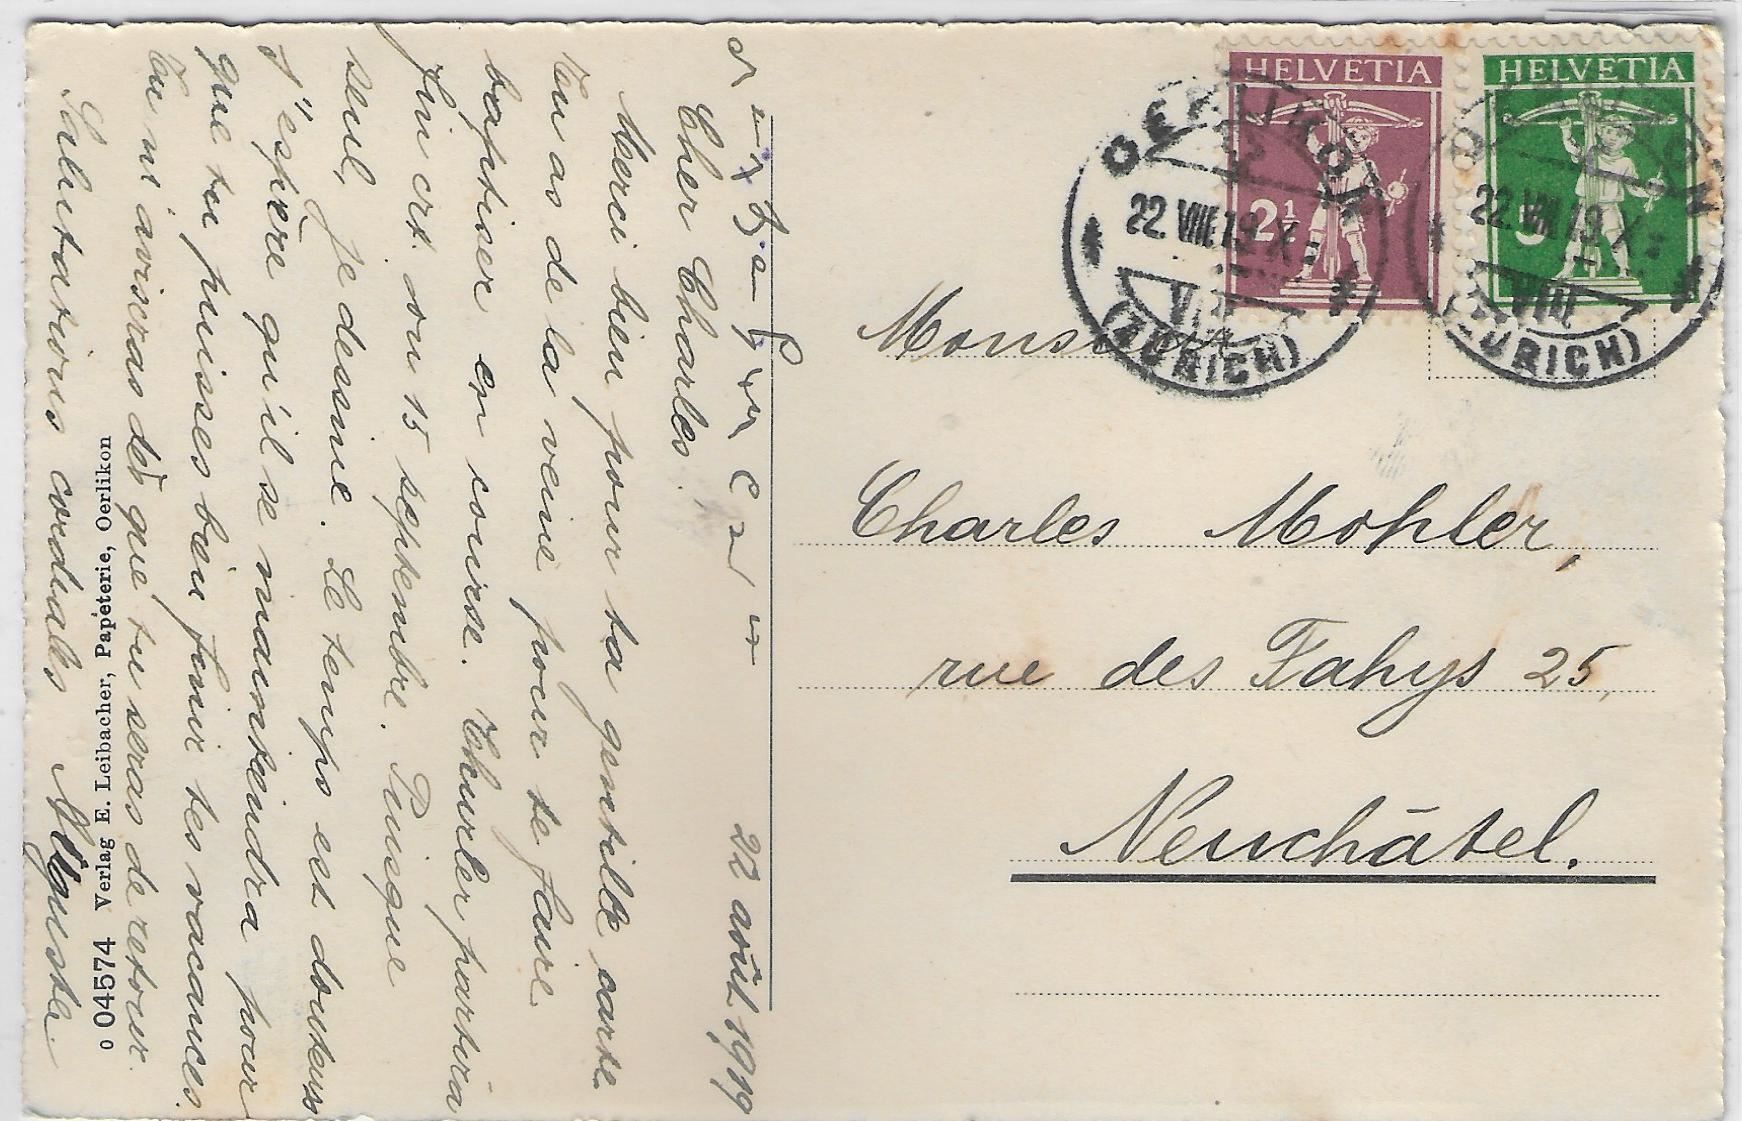 22 août 1919
Cher Charles.
Merci bien pour ta gentille carte.
Tu as de la veine pour te faire
baptiser en Thurler partira
fin crt. ou 15 septembre.
seul, je dessine. Le temps est douteux
J'espère qu'il se maintiendra pour
que tu puisses bien finir tes vacances.
Tu m'aviseras dès que tu seras de retour.
Salutations cordiales Auguste.
o 04574 Verlag E. Leibacher, Papeterie, Oerlikon
HELVETIA
2½
HELVETIA
5
OERLIKON
22.VIII.19.X
VIII
(ZÜRICH)
OERLIKON
22.VIII.19.X
VIII
(ZÜRICH)
Monsieur
Charles Mohler,
rue des Fahys 25,
Neuchâtel.